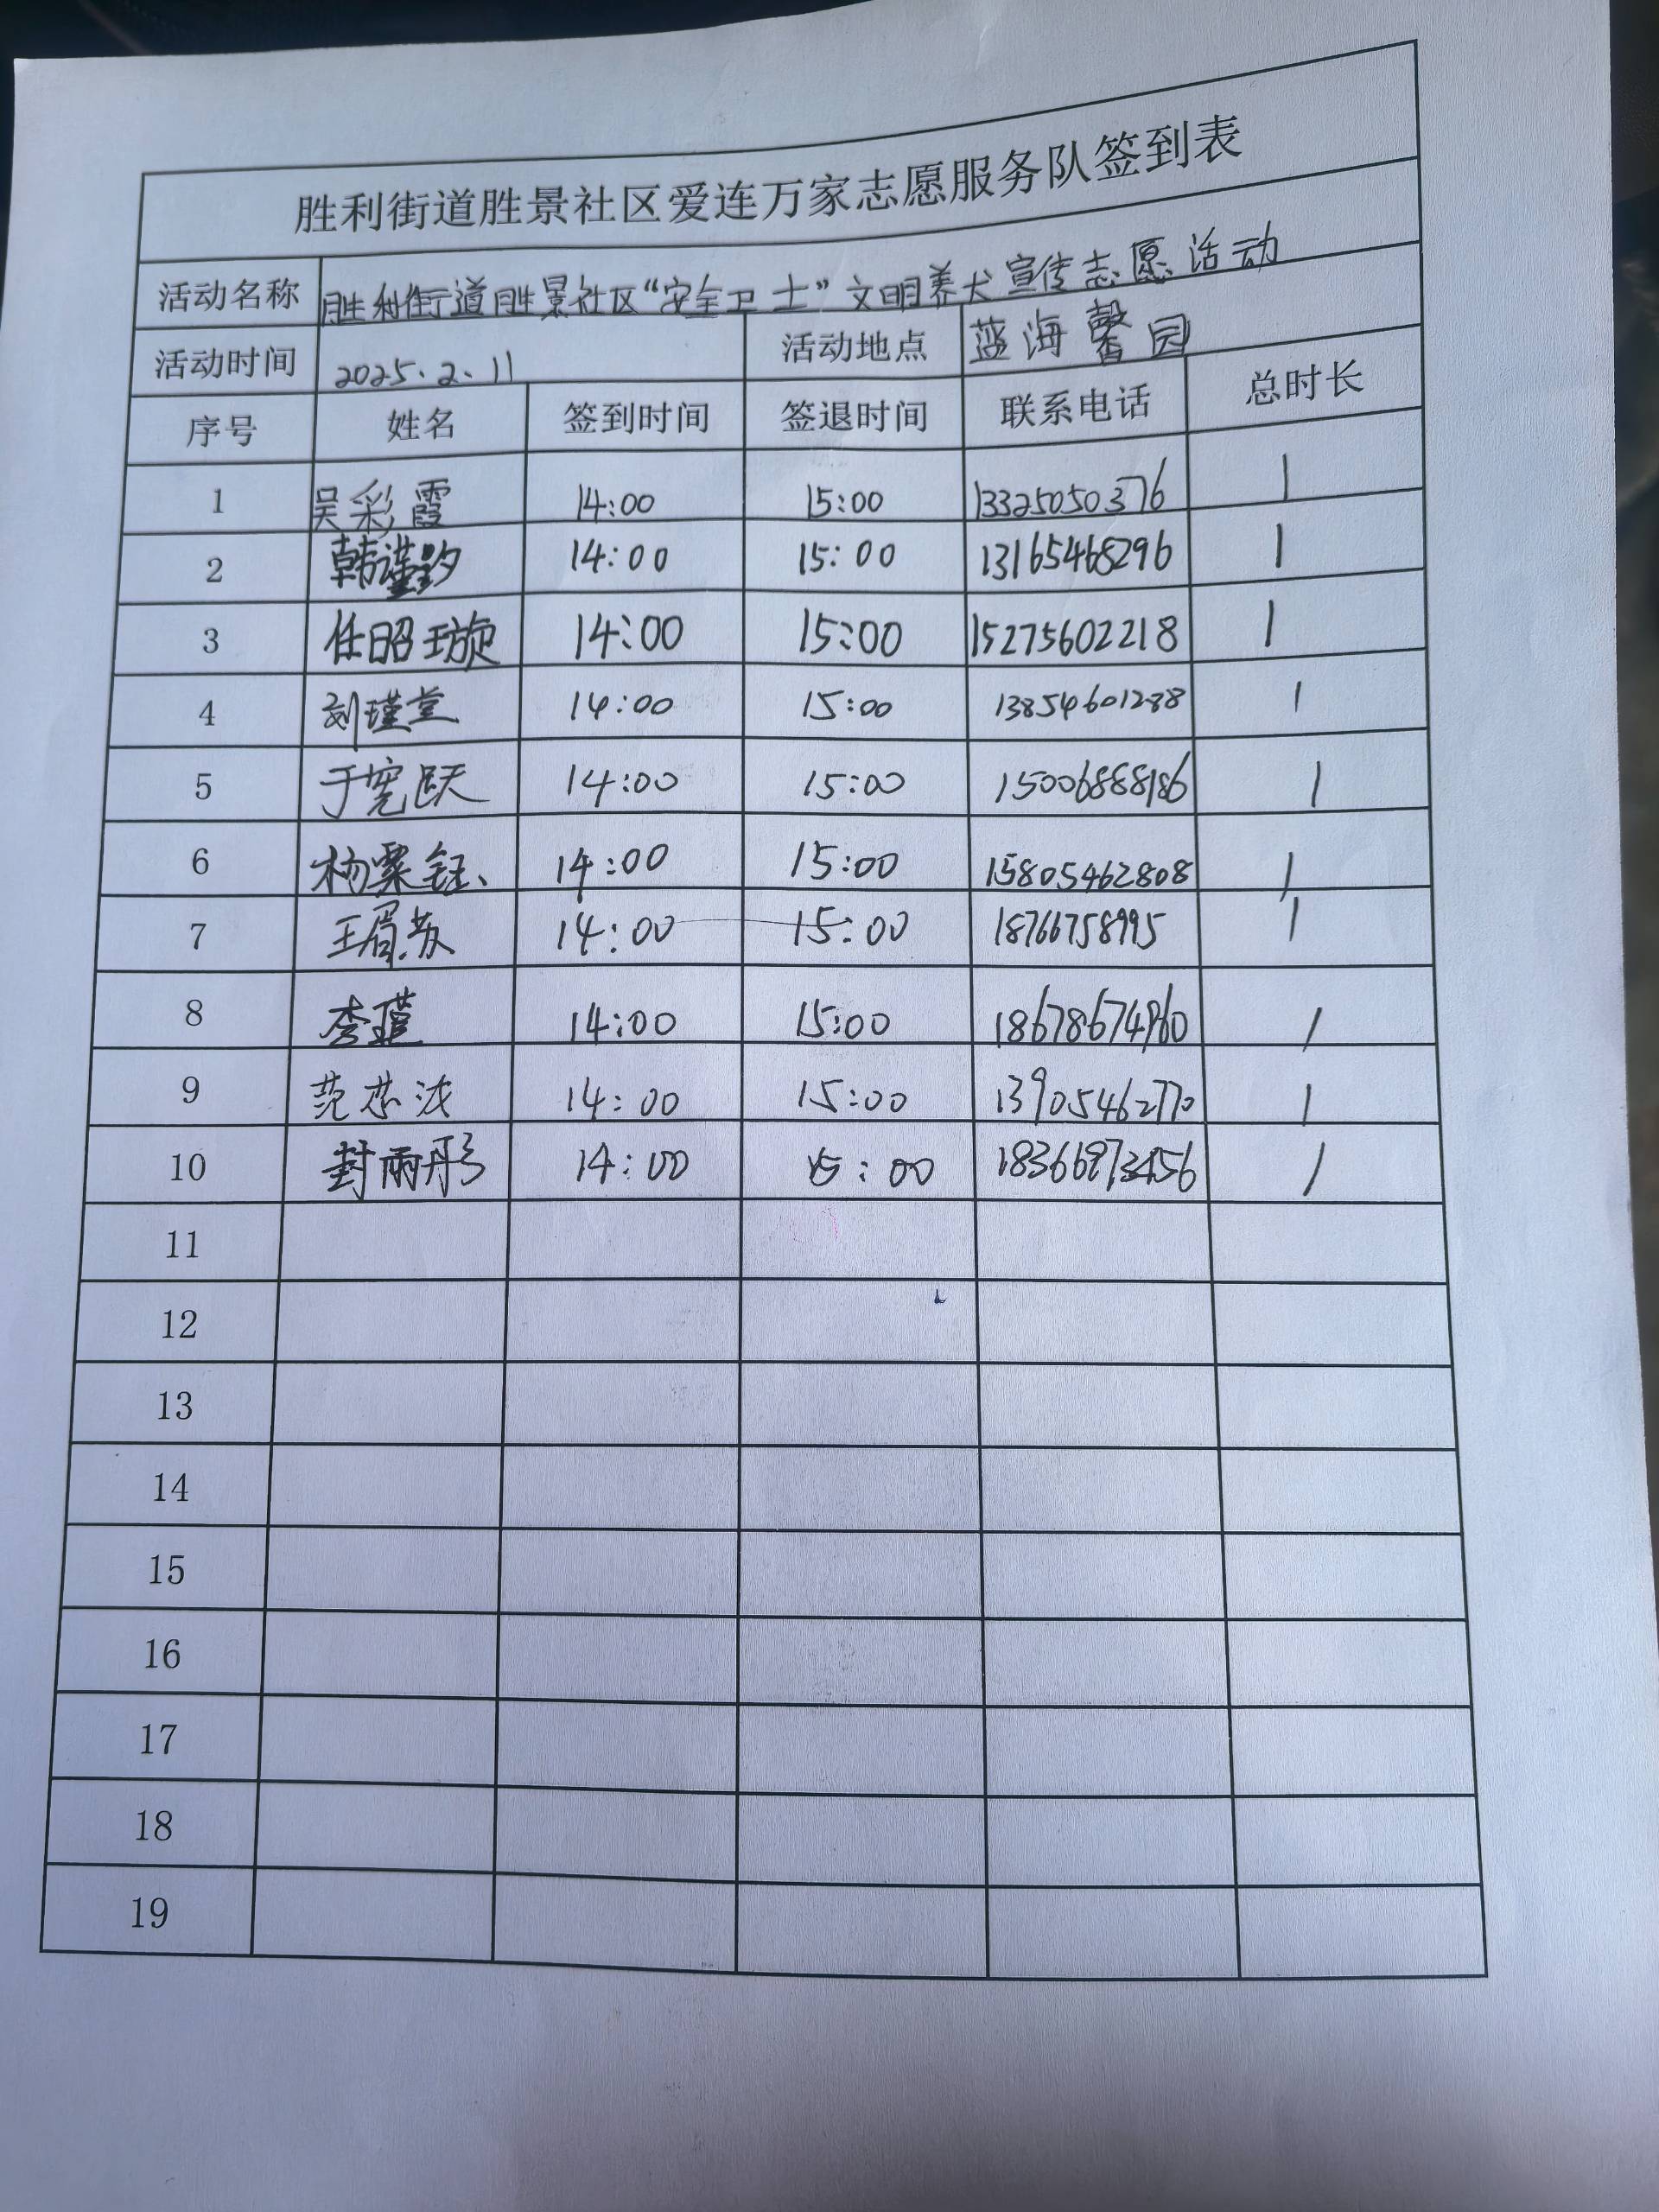 胜利街道胜景社区爱连万家志愿服务队签到表
活动名称 胜利街道胜景社区“安全卫士”文明养犬宣传志愿活动
活动时间 2025.2.11 活动地点 蓝海馨园
序号 姓名 签到时间 签退时间 联系电话 总时长
1 吴彩霞 14:00 15:00 13325050376 1
2 14:00 15:00 13165468296 1
3 任昭璇 14:00 15:00 15275602218 1
4 刘瑾萱 14:00 15:00 13854601288 1
5 14:00 15:00 15006888186 1
6 14:00 15:00 15805462808 1
7 王眉苏 14:00 15:00 18766758995 1
8 李瑾 14:00 15:00 18678674960 1
9 14:00 15:00 13905462770 1
10 封雨彤 14:00 15:00 1
11
12
13
14
15
16
17
18
19